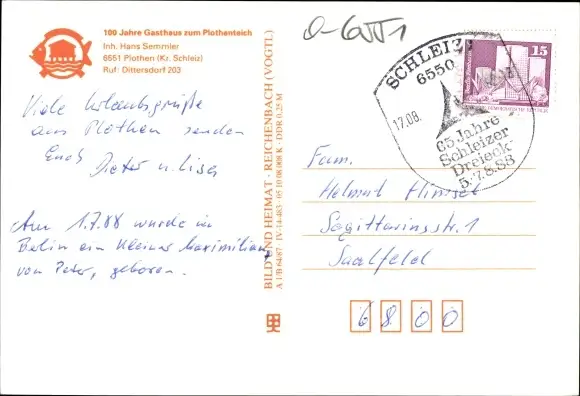 100 Jahre Gasthaus zum Plothenteich
Inh. Hans Semmler
6551 Plothen (Kr. Schleiz)
Ruf: Dittersdorf 203
Viele Urlaubsgrüße
aus Plothen senden
Euch
Dieter u. Lisa
Am 1.7.88 wurde in
Berlin ein kleiner Maximilian,
von Peter, geboren.
BILD UND HEIMAT · REICHENBACH (VOGTL)
A 1/B 64/87 IV-14-483 05 10 08 008 K DDR 0,25 M
SCHLEIZ
6550
17.08.
65 Jahre
Schleizer
Dreieck
5.-7.8.88
15
Fam.
Helmut
Sagittariusstr. 1
Saalfeld
6800